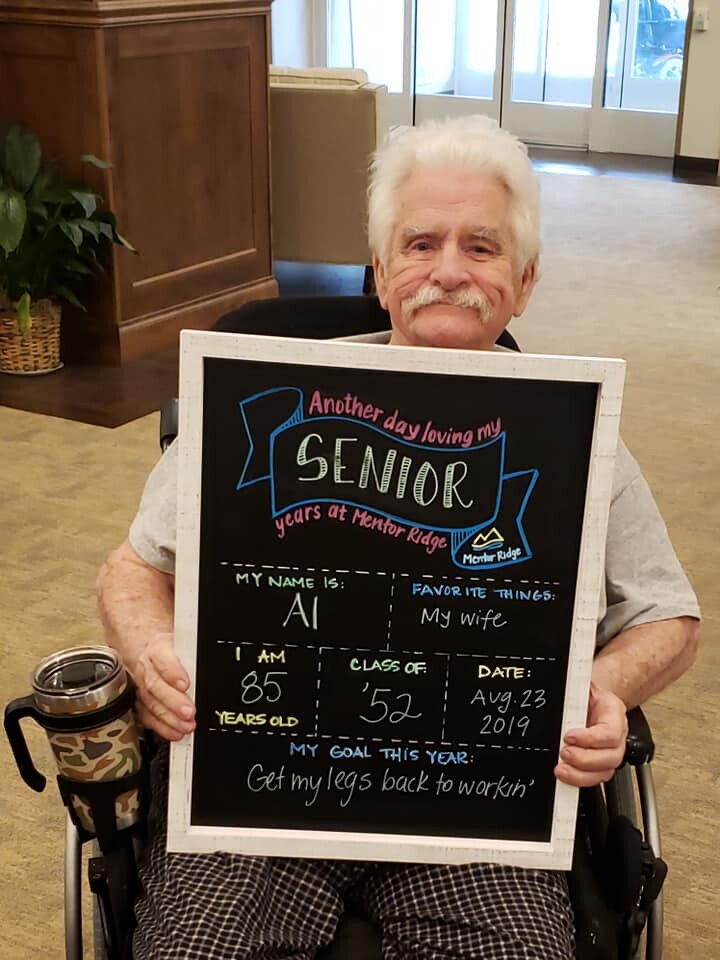 Another day loving my
SENIOR
years at Mentor Ridge
Mentor Ridge
MY NAME IS:
Al
FAVORITE THINGS:
My wife
I AM
85
YEARS OLD
CLASS OF:
'52
DATE:
Aug. 23
2019
MY GOAL THIS YEAR:
Get my legs back to workin'